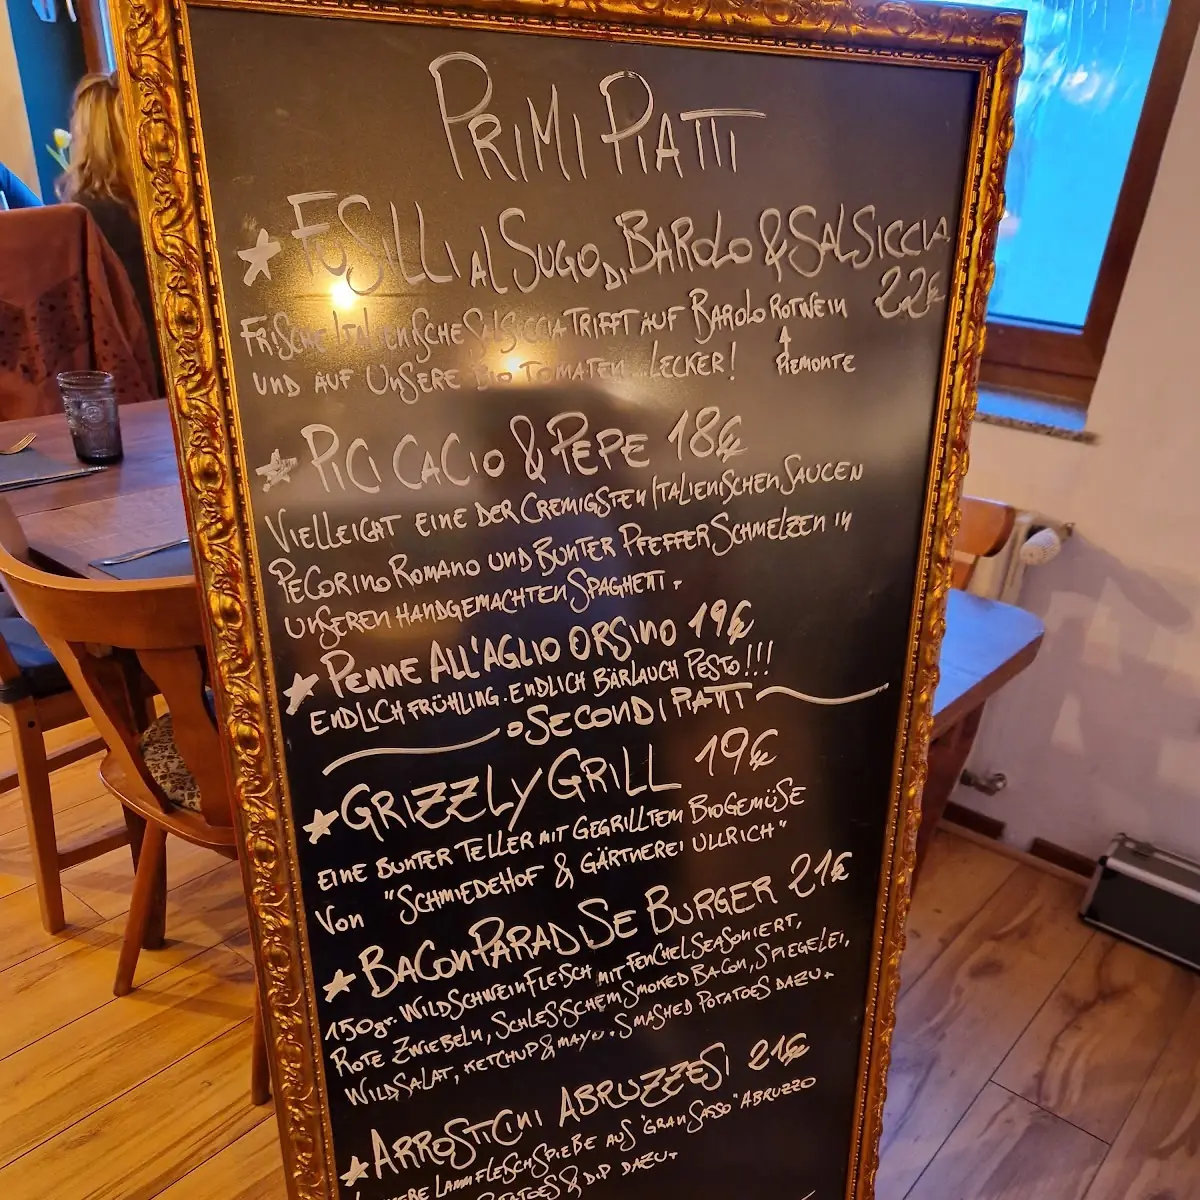 PRIMI PIATTI
FUSILLI AL SUGO DI BAROLO & SALSICCIA
22€
FRISCHE ITALIENISCHE SALSICCIA TRIFFT AUF BAROLO ROTWEIN
UND AUF UNSERE BIO TOMATEN. LECKER! PIEMONTE
PICI CACIO & PEPE 18€
VIELLEICHT EINE DER CREMIGSTEN ITALIENISCHEN SAUCEN
PECORINO ROMANO UND BUNTER PFEFFER SCHMELZEN IN
UNSEREN HANDGEMACHTEN SPAGHETTI.
PENNE ALL'AGLIO ORSINO 19€
ENDLICH FRÜHLING. ENDLICH BÄRLAUCH PESTO!!!
SECONDI PIATTI
GRIZZLY GRILL 19€
EINE BUNTER TELLER MIT GEGRILLTEM BIOGEMÜSE
VON "SCHMIEDEHOF & GÄRTNEREI ULLRICH"
BACONPARADISE BURGER 21€
150gr. WILDSCHWEINFLEISCH MIT FENCHELSEASONIERT,
ROTE ZWIEBELN, SCHLESISCHEM SMOKED BACON, SPIEGELEI,
WILDSALAT, KETCHUP & MAYO. SMASHED POTATOES DAZU.
ARROSTICINI ABRUZZESI 21€
LAMMFLEISCHSPIEßE AUS "GRAN SASSO" ABRUZZO
POTATOES & DIP DAZU.